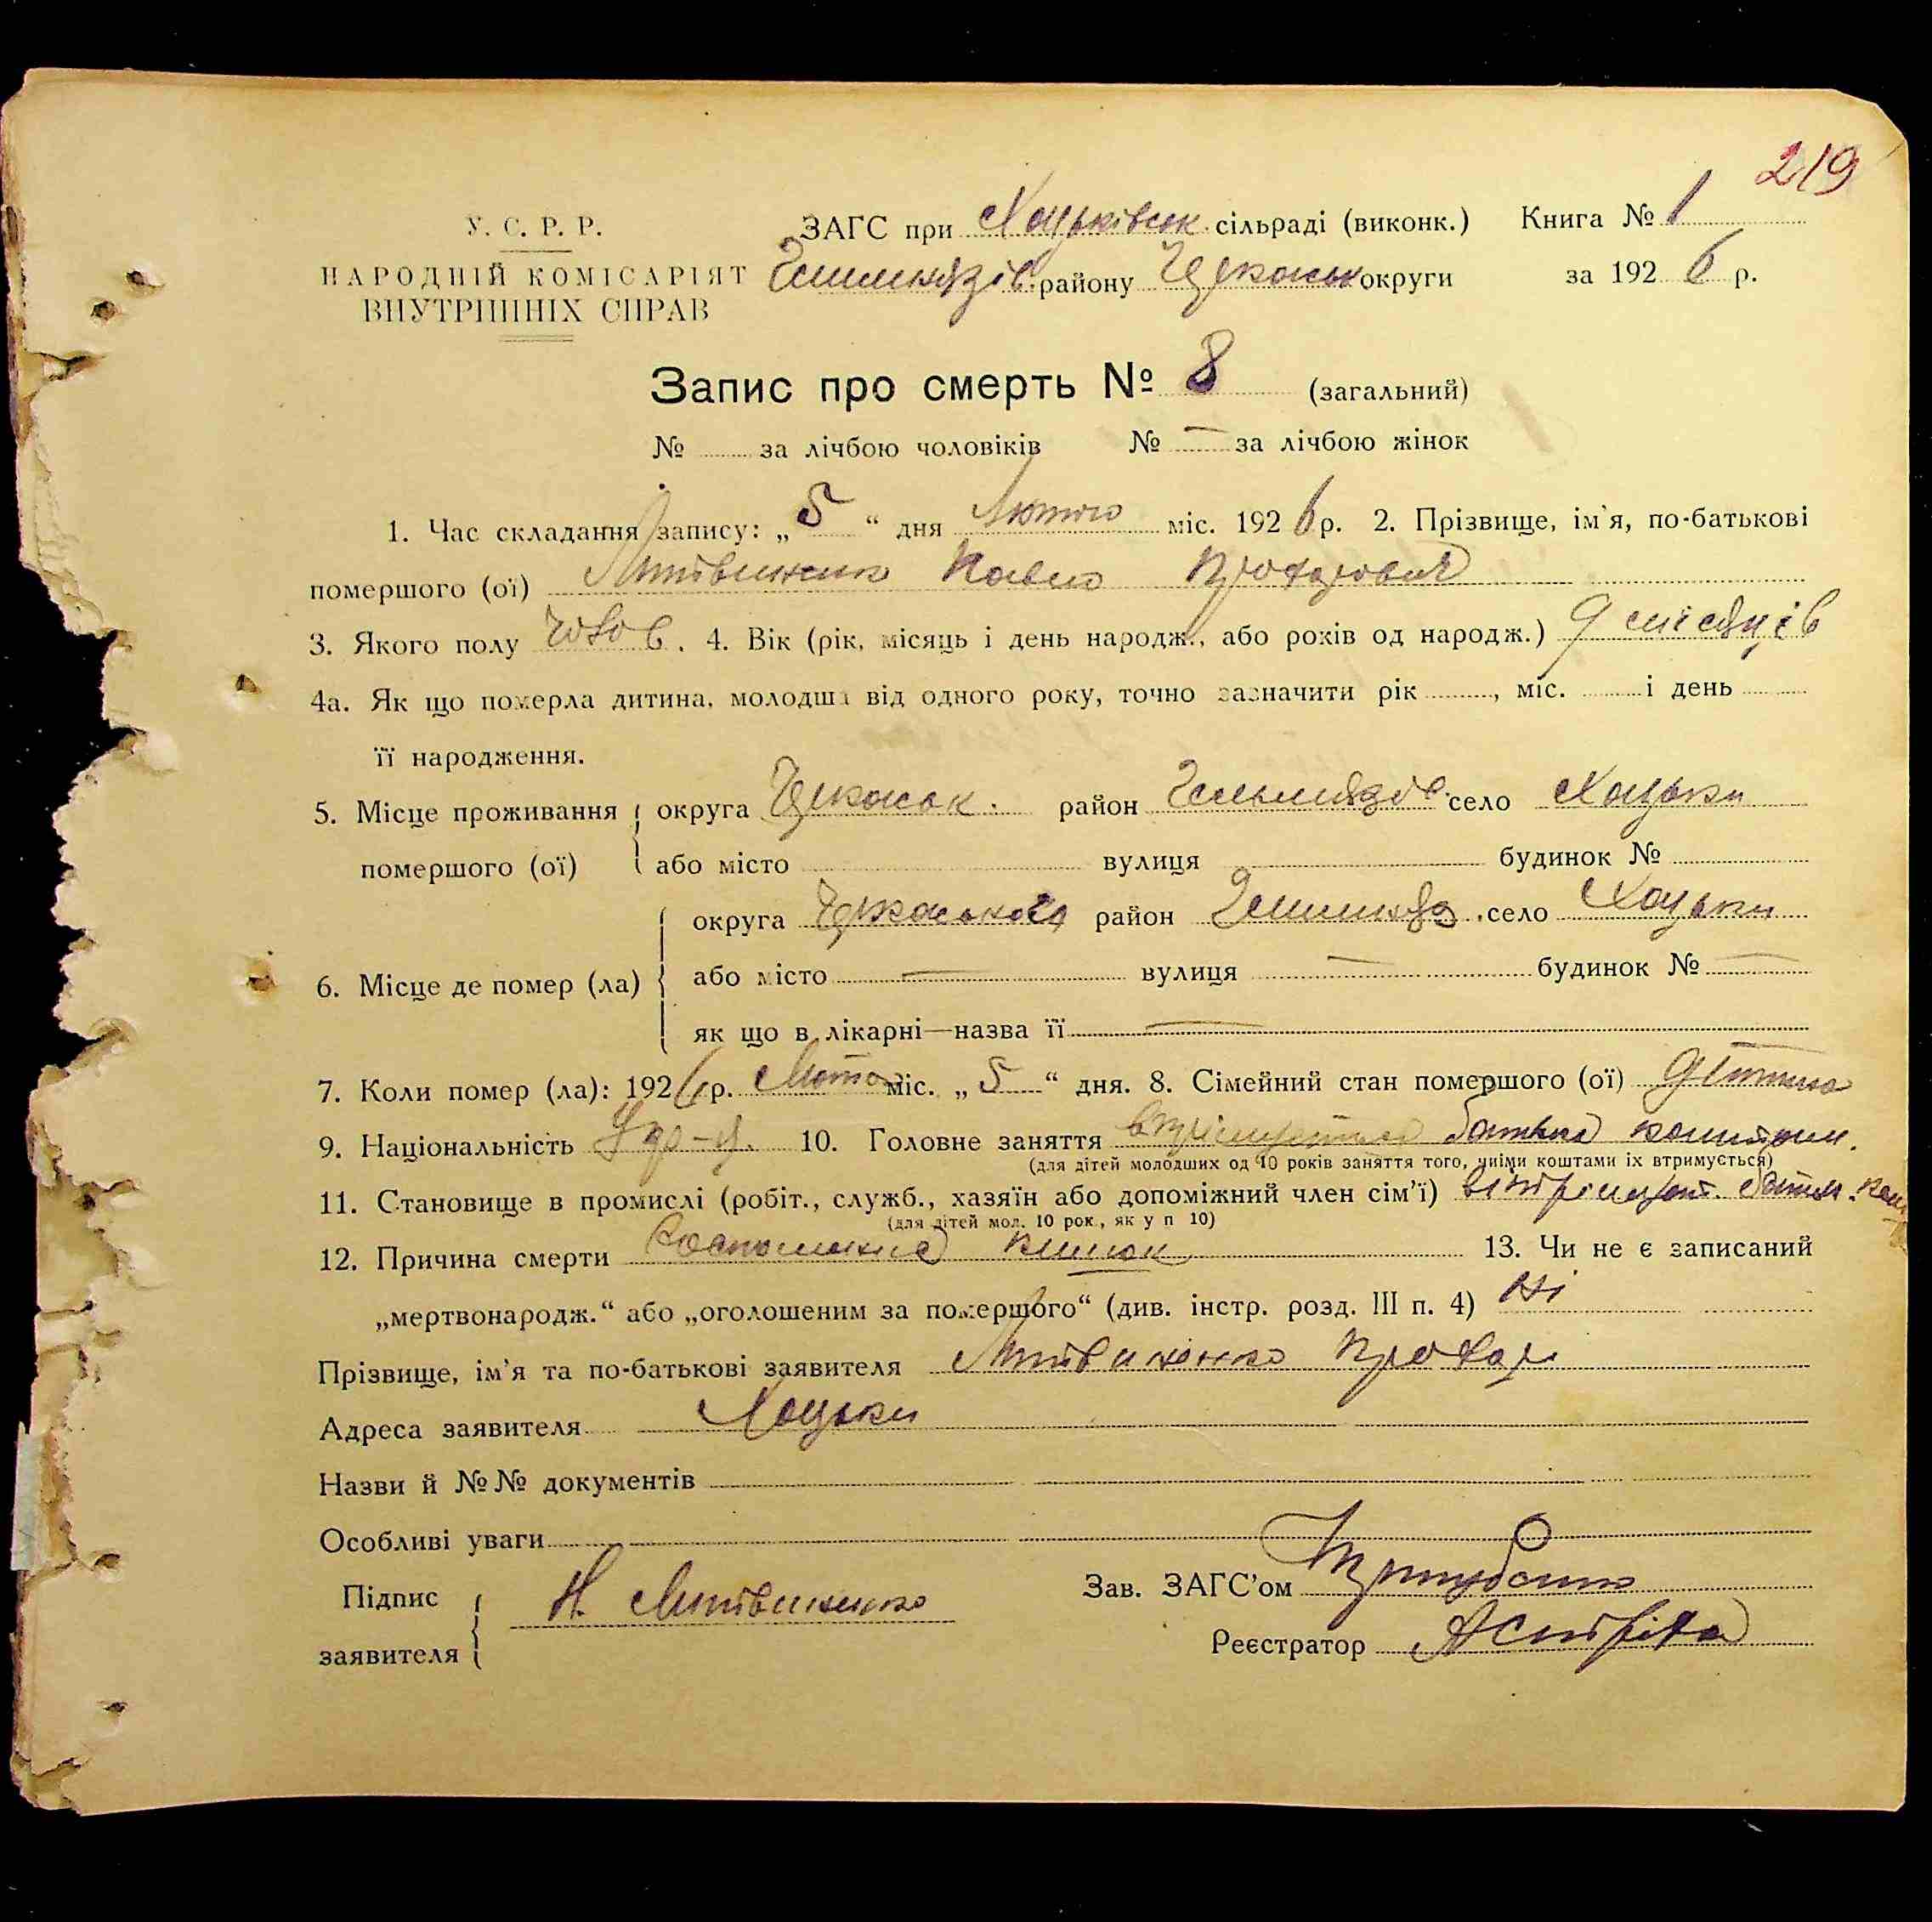 219
У. С. Р. Р.
НАРОДНІЙ КОМІСАРІЯТ
ВНУТРІШНІХ СПРАВ
ЗАГС при Хоцьківськ. сільраді (виконк.) Книга № 1
Гельмязів. району Черкаськ округи за 1926 р.
Запис про смерть № 8 (загальний)
№ за лічбою чоловіків № — за лічбою жінок
1. Час складання запису: „5“ дня Лютого міс. 1926 р. 2. Прізвище, ім'я, по-батькові
помершого (ої) Литвиненко Павло Прохорович
3. Якого полу чолов. 4. Вік (рік, місяць і день народж., або років од народж.) 9 місяців
4а. Як що померла дитина, молодша від одного року, точно зазначити рік , міс. і день
її народження.
5. Місце проживання помершого (ої) округа Черкаськ. район Гельмязів. село Хоцьки
або місто вулиця будинок №
6. Місце де помер (ла) округа Черкаська район Гельмязів. село Хоцьки
або місто — вулиця — будинок № —
як що в лікарні—назва її —
7. Коли помер (ла): 1926 р. Лютого міс. „5“ дня. 8. Сімейний стан помершого (ої) дітина
9. Національність Укр-ц. 10. Головне заняття батька коштом.
(для дітей молодших од 10 років заняття того, чиїми коштами їх втримується)
11. Становище в промислі (робіт., служб., хазяїн або допоміжний член сім'ї) батьк.
(для дітей мол. 10 рок., як у п 10)
12. Причина смерти 13. Чи не є записаний
„мертвонародж.“ або „оголошеним за помершого“ (див. інстр. розд. III п. 4) Ні
Прізвище, ім'я та по-батькові заявителя Литвиненко Прохор
Адреса заявителя Хоцьки
Назви й №№ документів
Особливі уваги
Підпис заявителя Литвиненко
Зав. ЗАГС'ом
Реєстратор